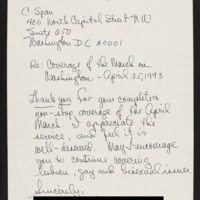 C-Span
400 North Capitol Street NW
Suite 650
Washington DC 20001
Re: Coverage of the March on
Washington - April 25, 1993
Thank you for your complete &
non-stop coverage of the April
March. I appreciate the
service, and feel it is
well-deserved. May I encourage
you to continue covering
lesbian, gay and bisexual issues.
Sincerely,